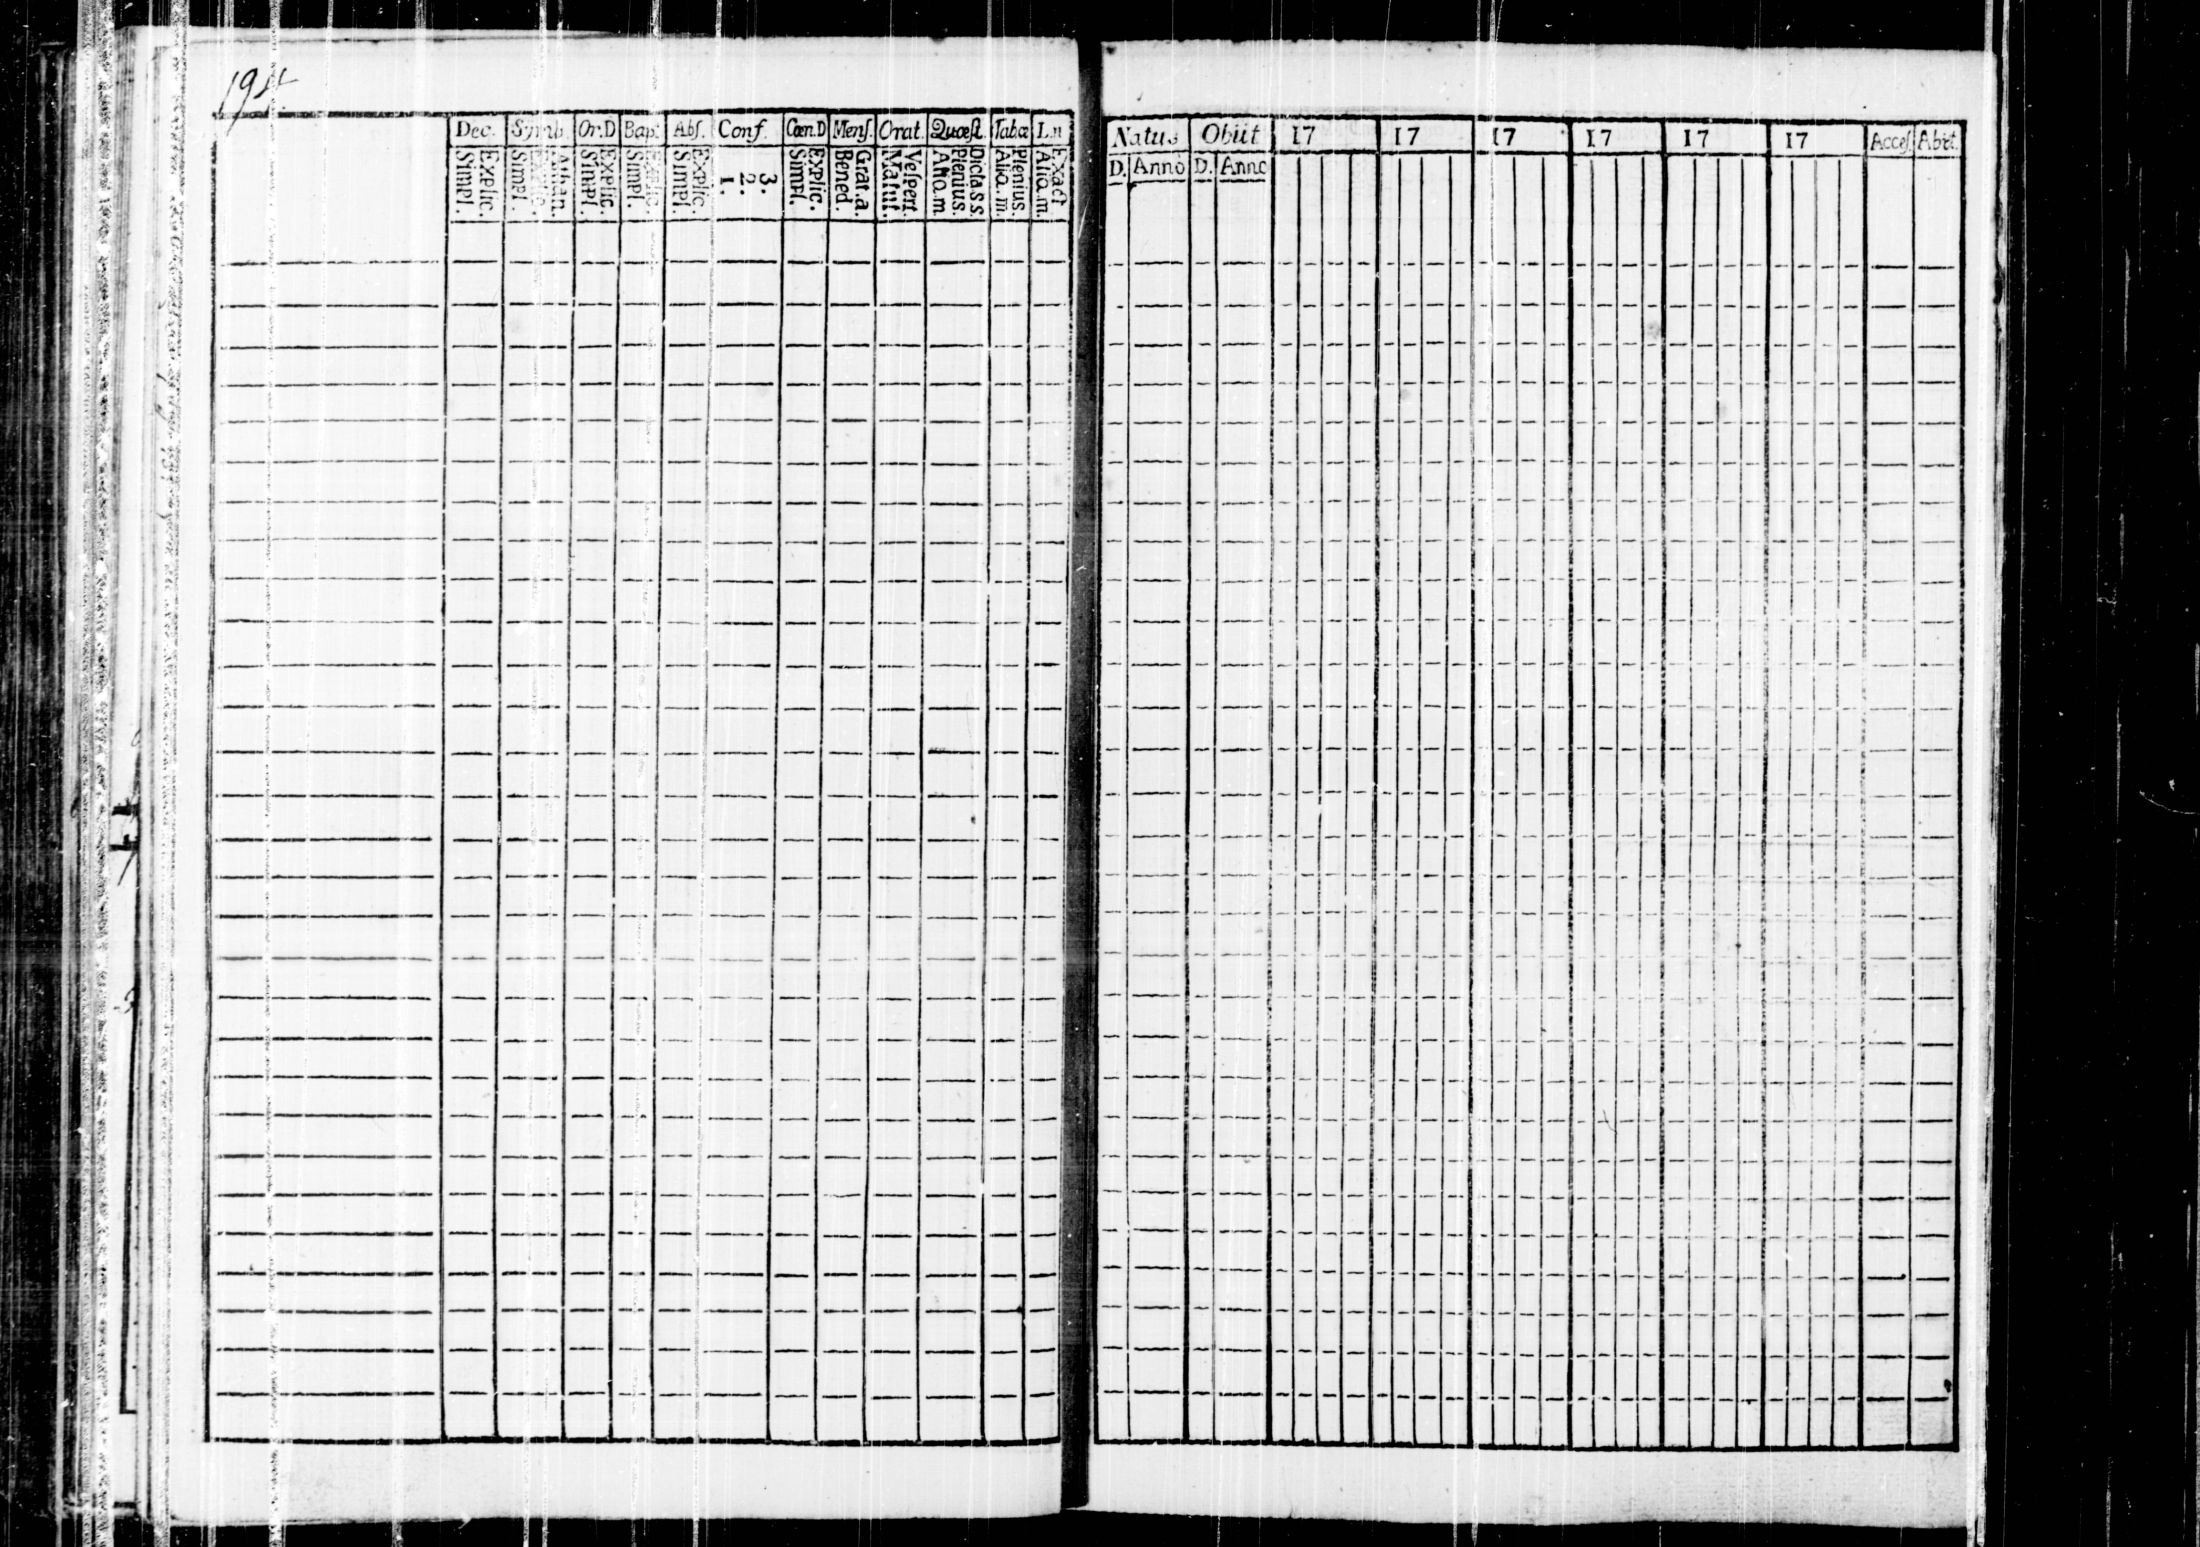 194
Dec. Symb. Or.D Bapt Abſ. Conf. Cœn.D Menſ. Orat. Quœſt. Tabœ
Explic. Simpl.
Athan. Explic. Simpl.
Explic. Simpl.
Explic. Simpl.
Explic. Simpl.
3. 2. 1.
Explic. Simpl.
Grat.a. Bened.
Veſpert. Matut.
Dicta S S. Plenius. Alio.m.
Plenius. Alia.m.
Exact Alia.m.
Natus Obiit 17 17 17 17 17 17 Acceſ. Abiit.
D. Anno D. Anno